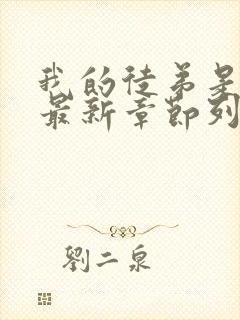 我的徒弟是
最新章節列
劉二泉